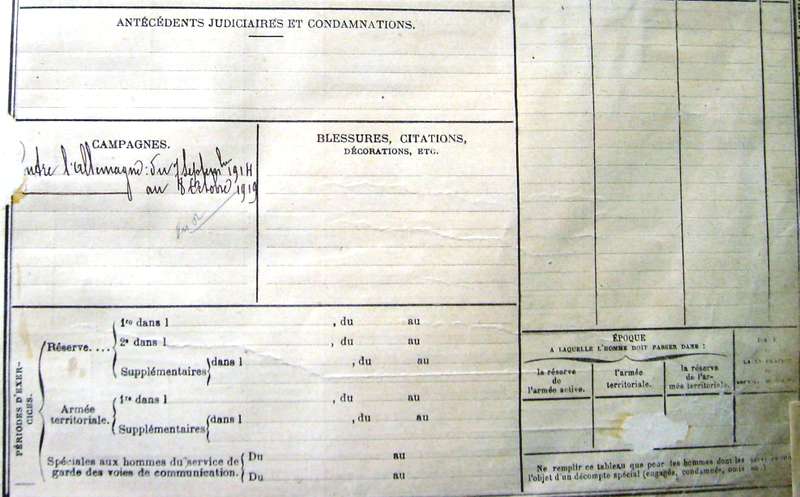 ANTÉCÉDENTS JUDICIAIRES ET CONDAMNATIONS.
CAMPAGNES.
l'Allemagne: du 7 Septembre 1914
au 8 Octobre 1919
BLESSURES, CITATIONS,
DÉCORATIONS, ETC.
PÉRIODES D'EXER-
CICES.
Réserve....
1re dans l , du au
2e dans l , du au
Supplémentaires dans l , du au
Armée
territoriale.
1re dans l , du au
Supplémentaires dans l , du au
Spéciales aux hommes du service de
garde des voies de communication.
Du au
Du au
ÉPOQUE
A LAQUELLE L'HOMME DOIT PASSER DANS :
la réserve
de
l'armée active.
l'armée
territoriale.
la réserve
de l'ar-
mée territoriale.
Ne remplir ce tableau que pour les hommes dont les
l'objet d'un décompte spécial (engagés, condamnés,